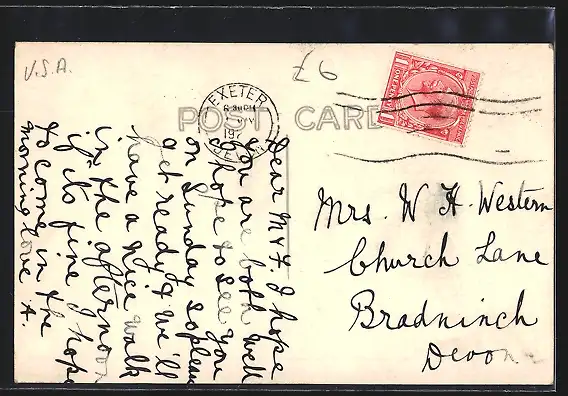 U.S.A.
£6
EXETER
192
DEVON
POST CARD
ONE PENNY
Dear M & F. I hope
you are both well
I hope to see you
on Sunday so please
get ready & we'll
have a nice walk
in the afternoon
if its fine I hope
to come in the
morning love A.
Mrs. W H. Western
Church Lane
Bradninch
Devon